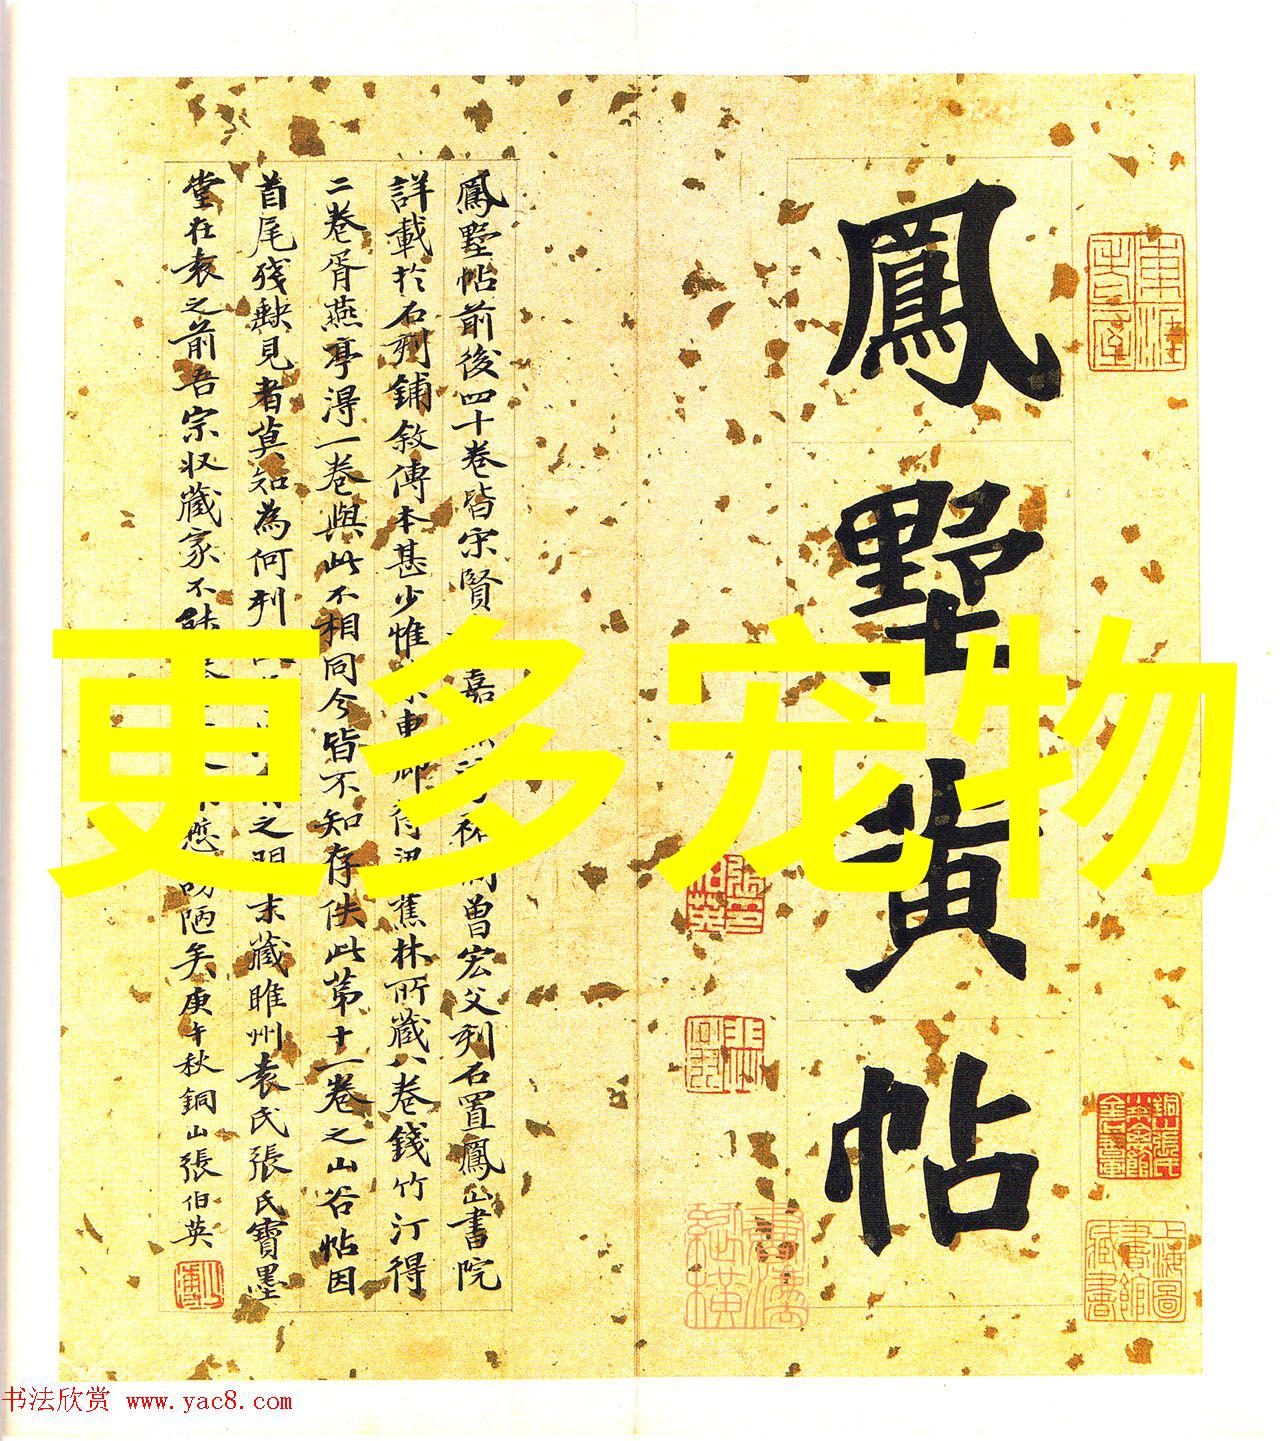 鳳墅黄帖
鳳墅帖前後四十卷皆宋賢嘉曾宏父刋石置鳳山書院
詳載於石刋鋪敘傳本甚少惟得汲蕉林所藏八卷錢竹汀得
二卷胥燕亭淂一卷與此不相同今皆不知存佚此第十一卷之山谷帖因
首尾殘缺見者莫知為何刋之明末藏睢州袁氏張氏寶墨
堂在袁之前吾宗収藏家不能愍陋矣庚午秋銅山張伯英
上海圖書館藏書
更多宠物
书法欣赏 www.yac8.com